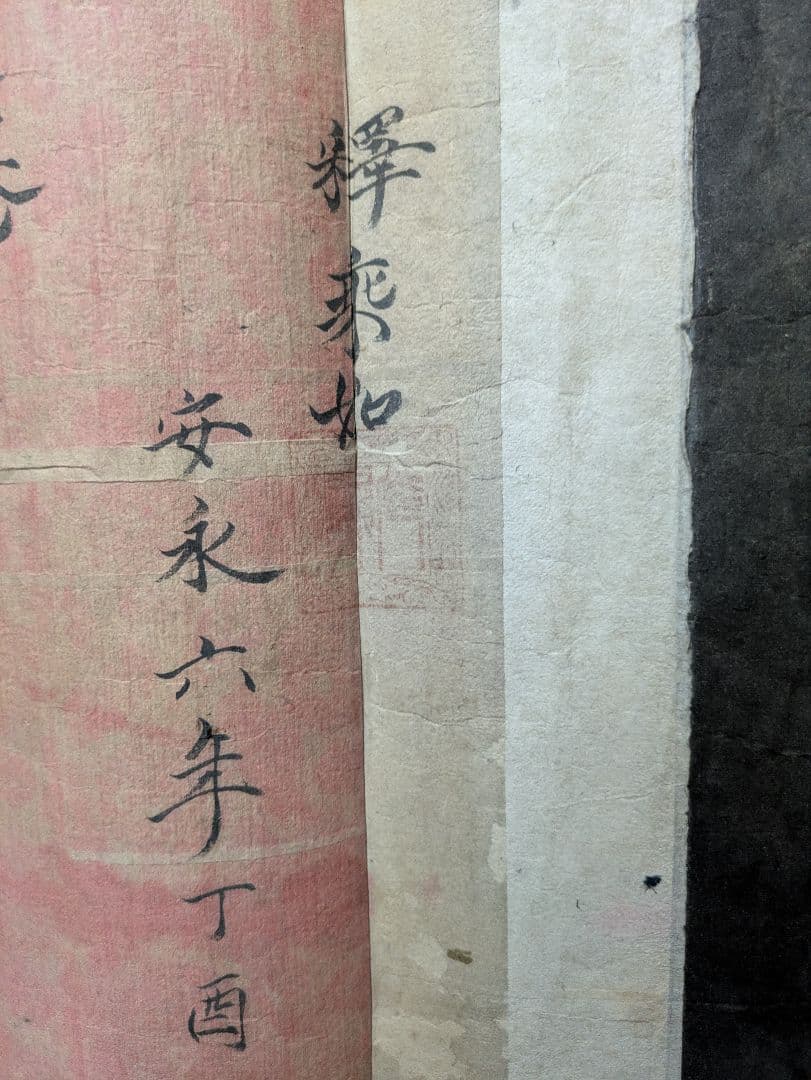 釋乘如
安永六年丁酉